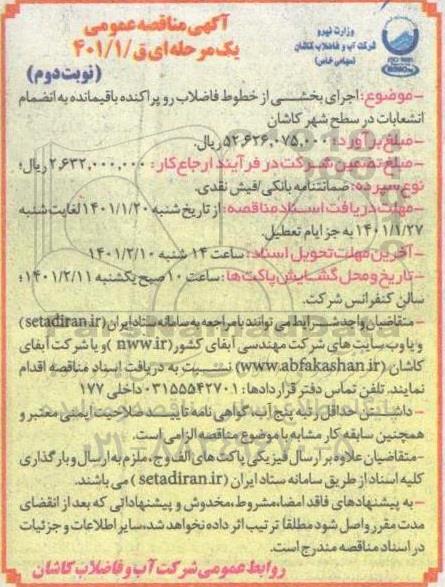 وزارت نیرو
شرکت آب و فاضلاب کاشان
(سهامی خاص)
آگهی مناقصه عمومی
یک مرحله ای ق/۴۰۱/۱
(نوبت دوم)
-موضوع: اجرای بخشی از خطوط فاضلاب رو پراکنده باقیمانده به انضمام
انشعابات در سطح شهر کاشان
-مبلغ برآورد: ۵۲,۶۲۶,۰۷۵,۰۰۰ ریال.
-مبلغ تضمین شرکت در فرآیند ارجاع کار: ۲,۶۳۲,۰۰۰,۰۰۰ ریال؛
نوع سپرده: ضمانتنامه بانکی/فیش نقدی.
-مهلت دریافت اسناد مناقصه: از تاریخ شنبه ۱۴۰۱/۱/۲۰ لغایت شنبه
۱۴۰۱/۱/۲۷ به جز ایام تعطیل.
-آخرین مهلت تحویل اسناد: ساعت ۱۴ شنبه ۱۴۰۱/۲/۱۰
-تاریخ و محل گشایش پاکت ها: ساعت ۱۰ صبح یکشنبه ۱۴۰۱/۲/۱۱؛
سالن کنفرانس شرکت.
- متقاضیان واجد شرایط می توانند با مراجعه به سامانه ستاد ایران (setadiran.ir)
و یا وب سایت های شرکت مهندسی آبفای کشور (nww.ir) و یا شرکت آبفای
کاشان (www.abfakashan.ir) نسبت به دریافت اسناد مناقصه اقدام
نمایند. تلفن تماس دفتر قراردادها: ۰۳۱۵۵۵۴۲۷۰۱ داخلی ۱۷۷
- داشتن حداقل رتبه پنج آب، گواهی نامه تایید صلاحیت ایمنی معتبر و
همچنین سابقه کار مشابه با موضوع مناقصه الزامی است.
-متقاضیان علاوه بر ارسال فیزیکی پاکت های الف و ج، ملزم به ارسال و بارگذاری
کلیه اسناد از طریق سامانه ستاد ایران (setadiran.ir) می باشند.
-به پیشنهادهای فاقد امضا، مشروط، مخدوش و پیشنهاداتی که بعد از انقضای
مدت مقرر واصل شود مطلقا ترتیب اثر داده نخواهد شد، سایر اطلاعات و جزئیات
در اسناد مناقصه مندرج است.
روابط عمومی شرکت آب و فاضلاب کاشان